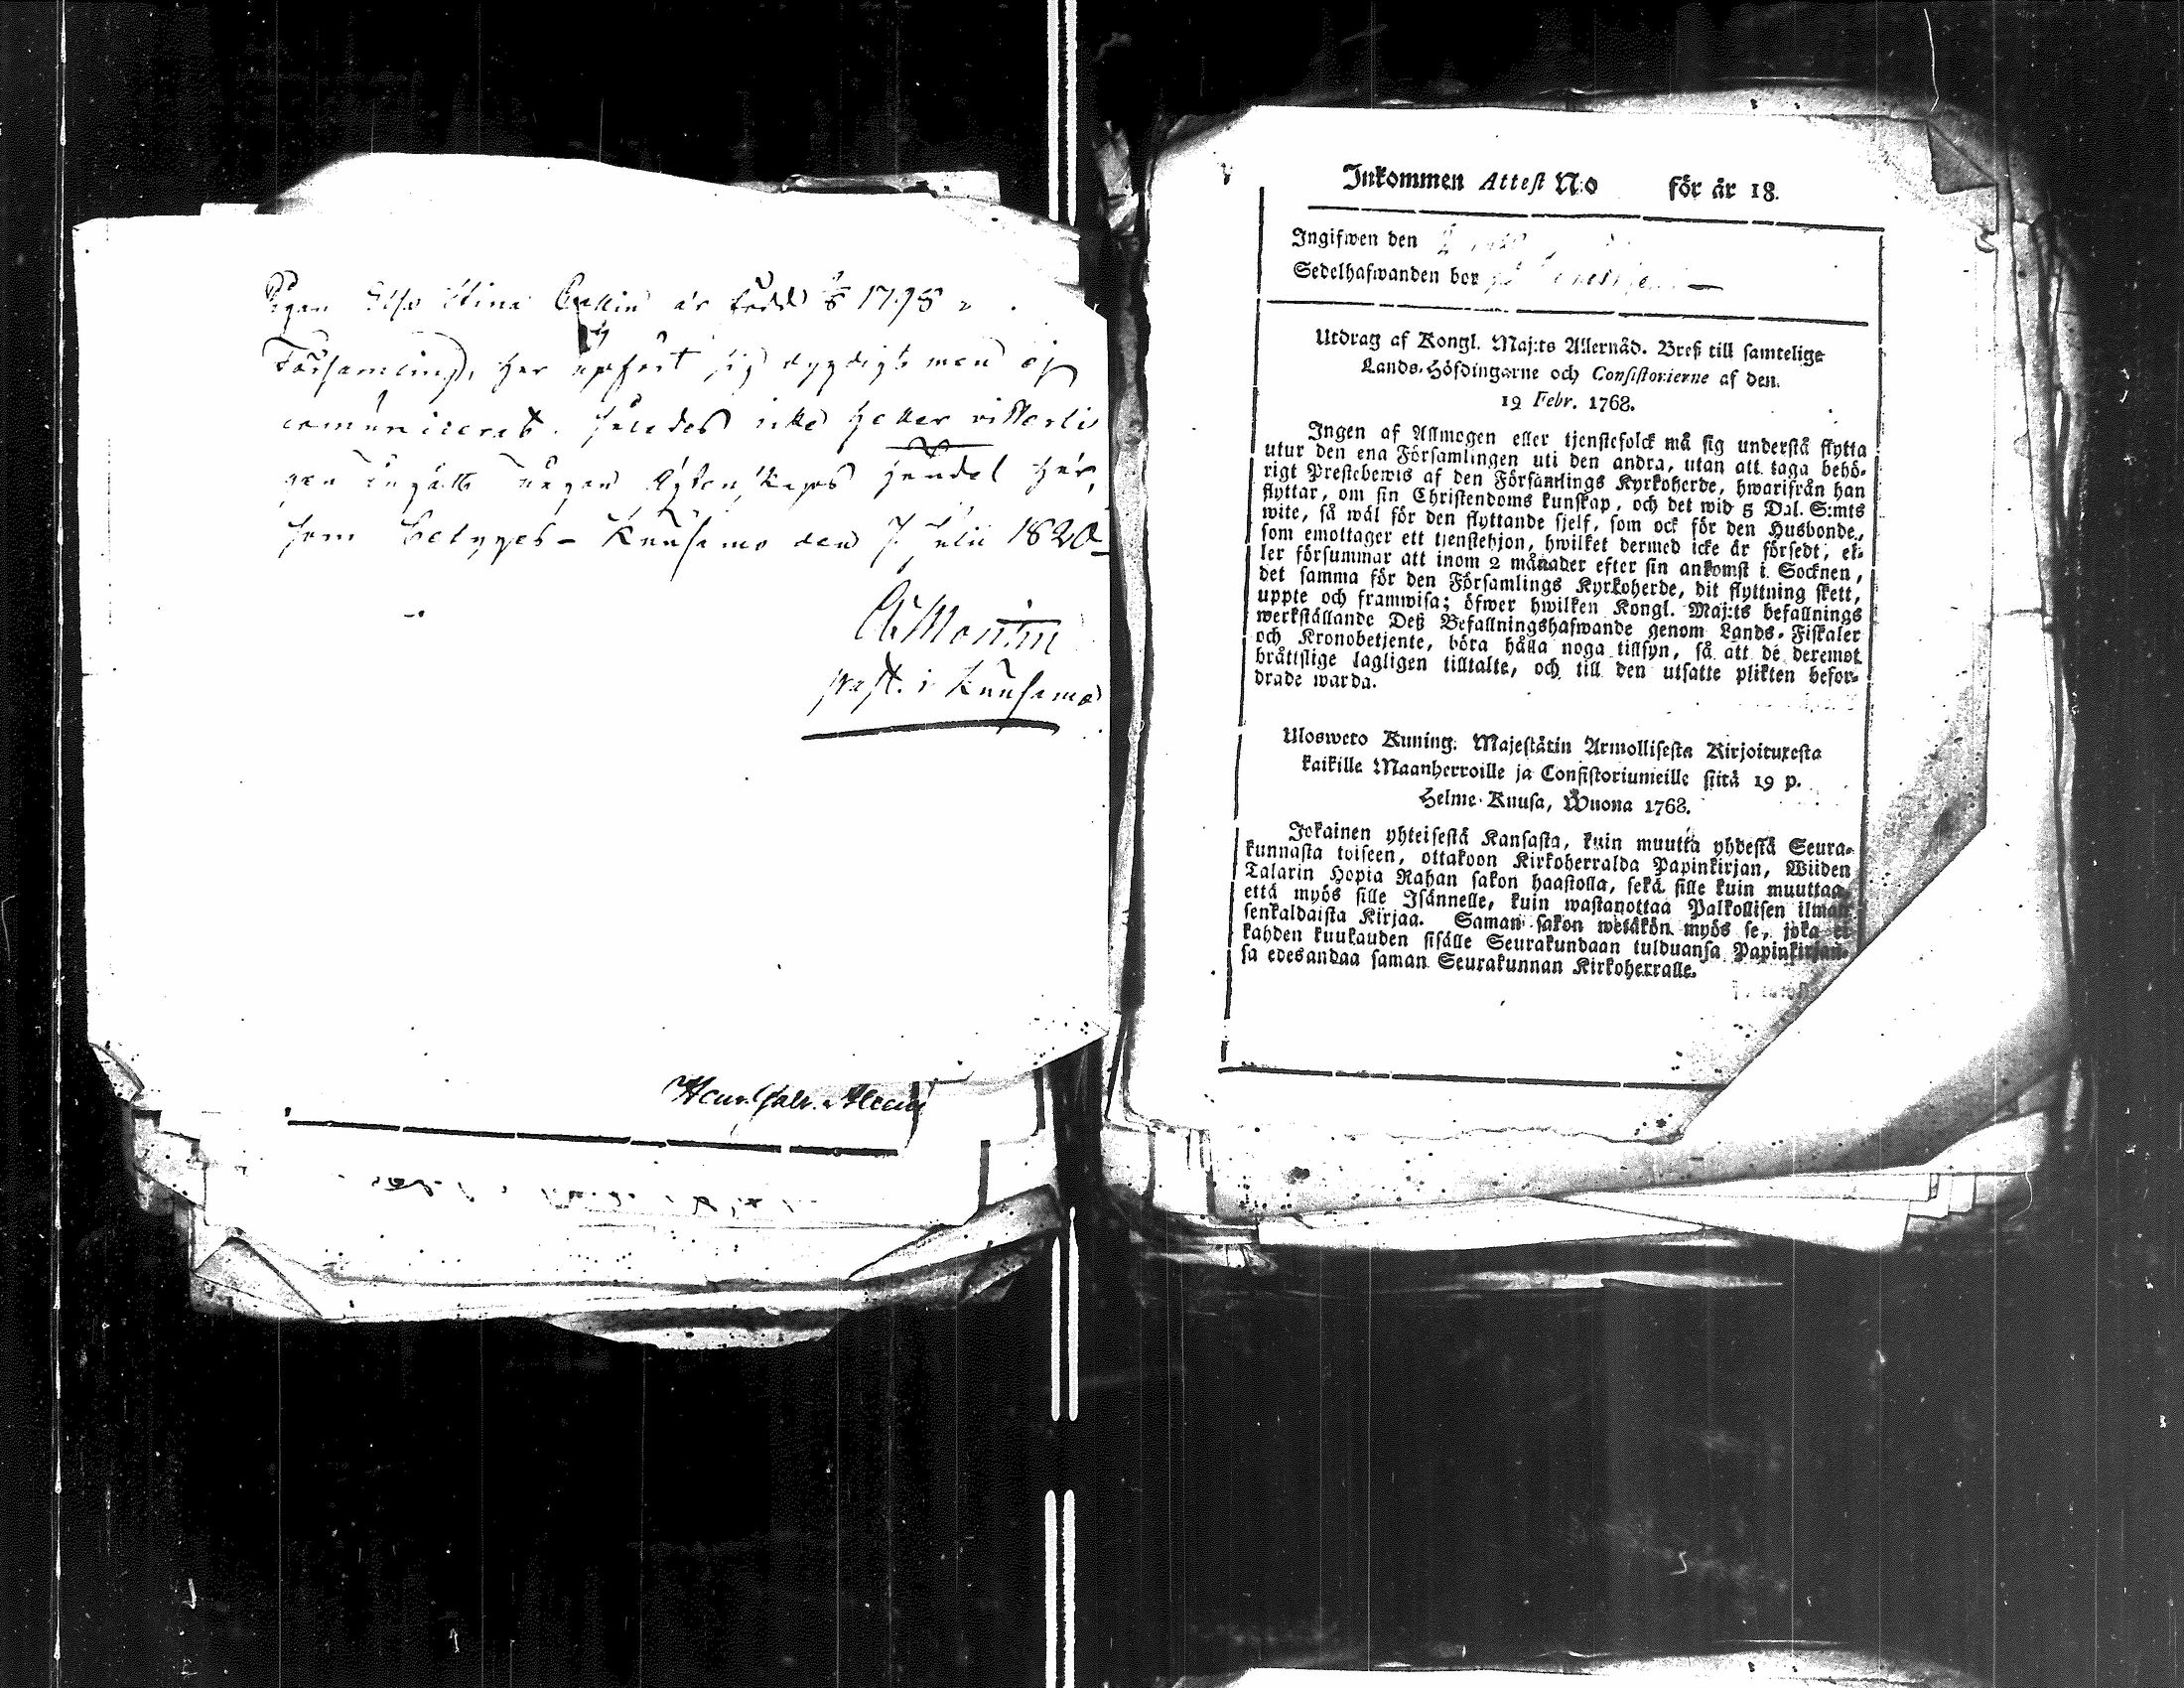 Pigan Elsa Stina är född 1798
Församling, har uppfört sig dygdigt men ej
communicerat. således icke heller vitterli
gen ingått någon Ägtenskaps handel här,
som betygas - Kuusamo den 7 Julii 1820
past. i Kuusamo
Inkommen Attest No för år 18.
Ingifwen den
Sedelhafwanden bor
Utdrag af Kongl. Maj:ts Allernåd. Bref till samtelige
Lands-Höfdingarne och Consistorierne af den.
19 Febr. 1768.
Ingen af Allmogen eller tjenstefolck må sig understå flytta
utur den ena Församlingen uti den andra, utan att taga behö-
rigt Prestebewis af den Församlings Kyrkoherde, hwarifrån han
flyttar, om sin Christendoms kunskap, och det wid 5 Dal. S:mts
wite, så wäl för den flyttande sjelf, som ock för den Husbonde,
som emottager ett tjenstehjon, hwilket dermed icke är försedt, el-
ler försummar att inom 2 månader efter sin ankomst i Socknen,
det samma för den Församlings Kyrkoherde, dit flyttning skett,
uppte och framwisa; öfwer hwilken Kongl. Maj:ts befallnings
werkställande Deß Befallningshafwande genom Lands-Fiskaler
och Kronobetjente, böra hålla noga tillsyn, så att de deremot
bråttslige lagligen tilltalte, och till den utsatte plikten befor-
drade warda.
Ulosweto Kuning. Majestätin Armollisesta Kirjoituxesta
kaikille Maanherroille ja Consistoriumeille siitä 19 p.
Helme-Kuusa, Wuona 1768.
Jokainen yhteisestä Kansasta, kuin muutta yhdestä Seura-
kunnasta toiseen, ottakoon Kirkoherralda Papinkirjan, Wiiden
Talarin Hopia Rahan sakon haastolla, sekä sille kuin muuttaa,
että myös sille Isännelle, kuin wastanottaa Palkollisen ilman
senkaldaista Kirjaa. Saman sakon wetäkön myös se, joka ei
kahden kuukauden sisälle Seurakundaan tulduansa Papinkirjan-
sa edesandaa saman Seurakunnan Kirkoherralle.